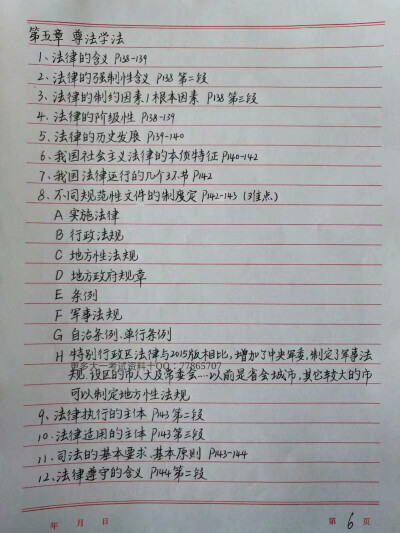 第五章 尊法学法
1、法律的含义 P138-139
2、法律的强制性含义 P138 第二段
3、法律的制约因素/根本因素 P138 第三段
4、法律的阶级性 P138-139
5、法律的历史发展 P139-140
6、我国社会主义法律的本质特征 P140-142
7、我国法律运行的几个环节 P142
8、不同规范性文件的制度定 P142-143 (难点)
A 实施法律
B 行政法规
C 地方性法规
D 地方政府规章
E 条例
F 军事法规
G 自治条例、单行条例
H 特别行政区法律与2015版相比,增加了中央军委,制定了军事法
更多大一考试资料+QQ:77865707
规,设区的市人大及常委会....以前是省会城市,其它较大的市
可以制定地方性法规
9、法律执行的主体 P143 第二段
10、法律适用的主体 P143 第三段
11、司法的基本要求、基本原则 P143-144
12、法律遵守的含义 P144 第二段
年 月 日 第 6 页